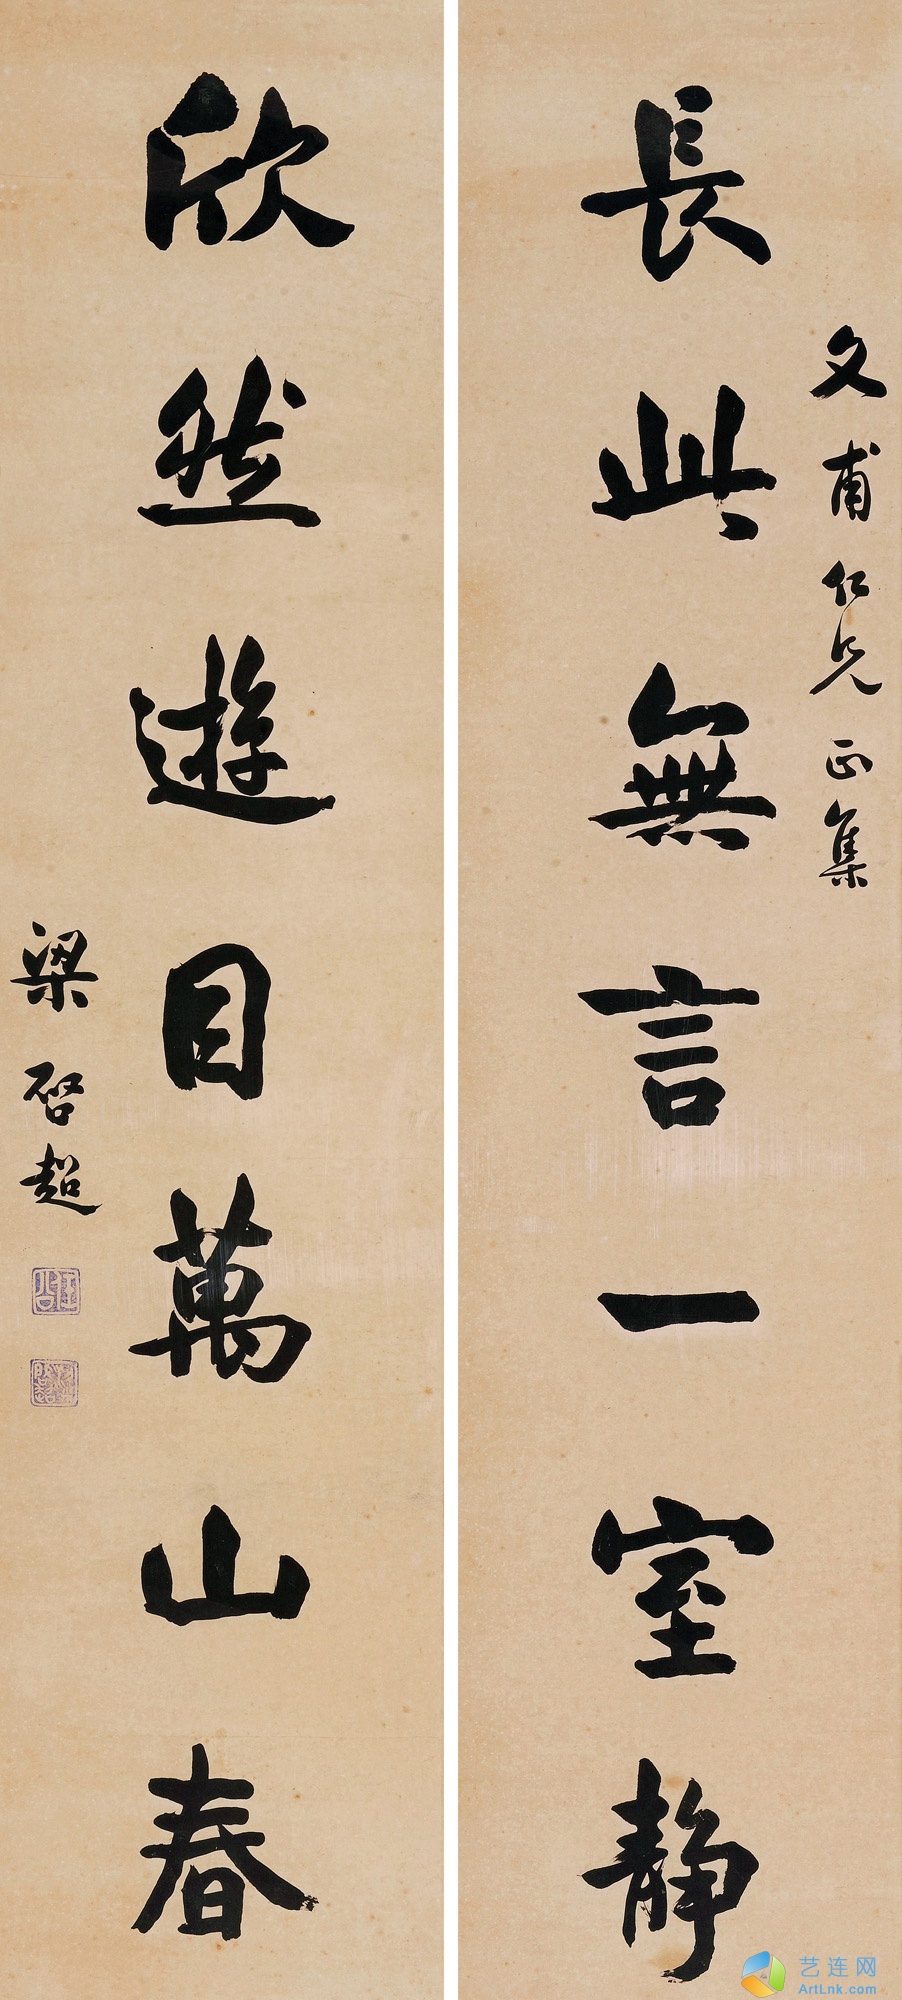 文甫仁兄正集
長此無言一室静
欣然遊目萬山春
梁啓超
艺连网
ArtLnk.com